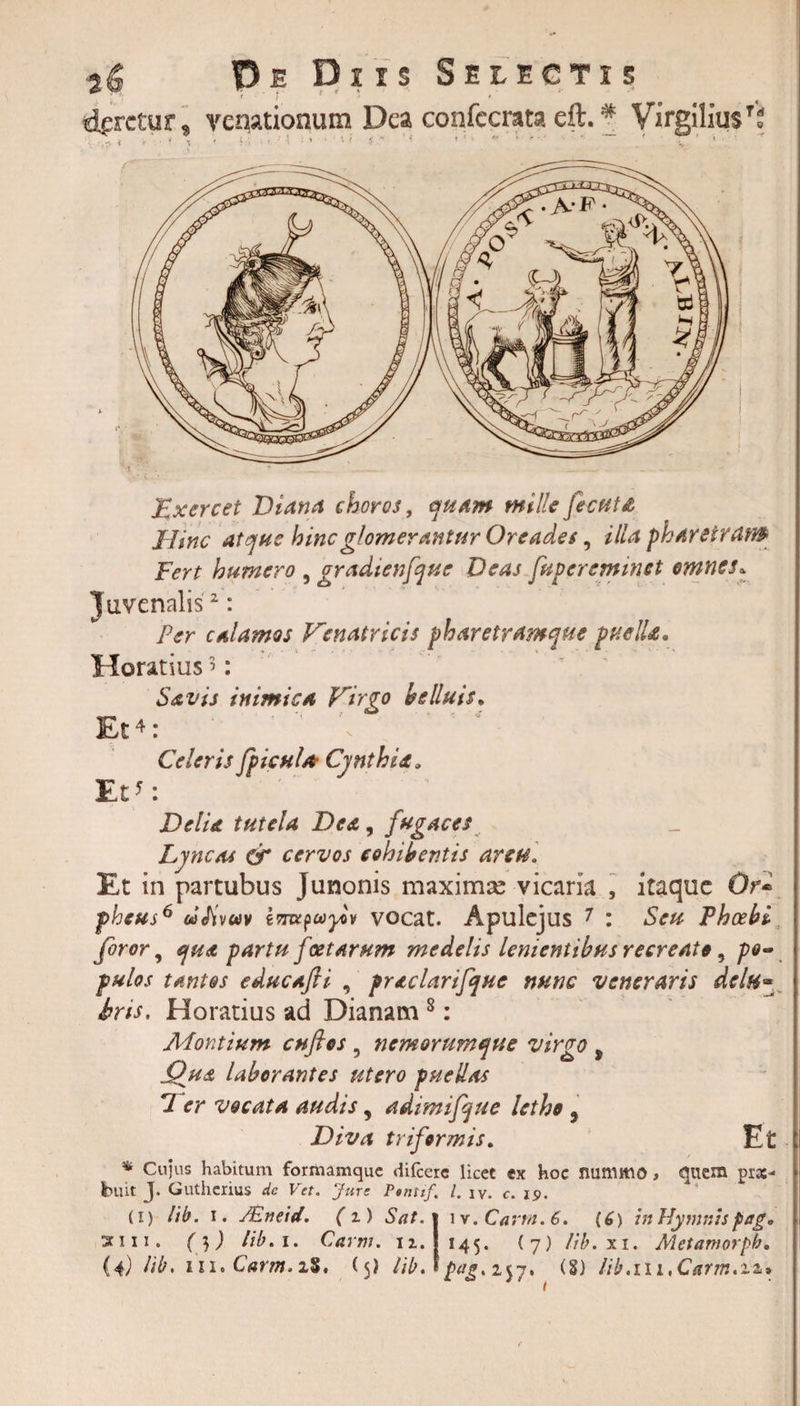 26 De Diis Selectis
deretur, venationum Dea consecrata est. * Virgilius¹:
A. POST. A. F. S. N. ALBIN.
Exercet Diana choros, quam mille secutæ
Hinc atque hinc glomerantur Oreades, illa pharetram
Fert humero, gradiensque Deas supereminet omnes.
Juvenalis²:
Per calamos Venatricis pharetramque puellæ.
Horatius³:
Sævis inimica Virgo belluis.
Et⁴:
Celeris spicula Cynthiæ.
Et⁵:
Deliæ tutela Deæ, fugaces
Lyncas & cervos cohibentis arcu.
Et in partubus Junonis maximæ vicaria, itaque Or-
pheus⁶ ὠδίνων ἐπαρωγὸν vocat. Apulejus⁷: Seu Phœbi
soror, quæ partu fœtarum medelis lenientibus recreato, po-
pulos tantos educasti, præclarisque nunc veneraris delu-
bris. Horatius ad Dianam⁸:
Montium custos, nemorumque virgo,
Quæ laborantes utero puellas
Ter vocata audis, adimisque letho,
Diva triformis. Et
* Cujus habitum formamque discere licet ex hoc nummo, quem præ-
buit J. Gutherius de Vet. Jure Pontif. l. iv. c. 19.
(1) lib. 1. Æneid. (2) Sat.
xiii. (3) lib. 1. Carm. 12.
(4) lib. iii. Carm. 28. (5) lib.
iv. Carm. 6. (6) in Hymnis pag.
145. (7) lib. xi. Metamorph.
pag. 257. (8) lib. iii. Carm. 22.